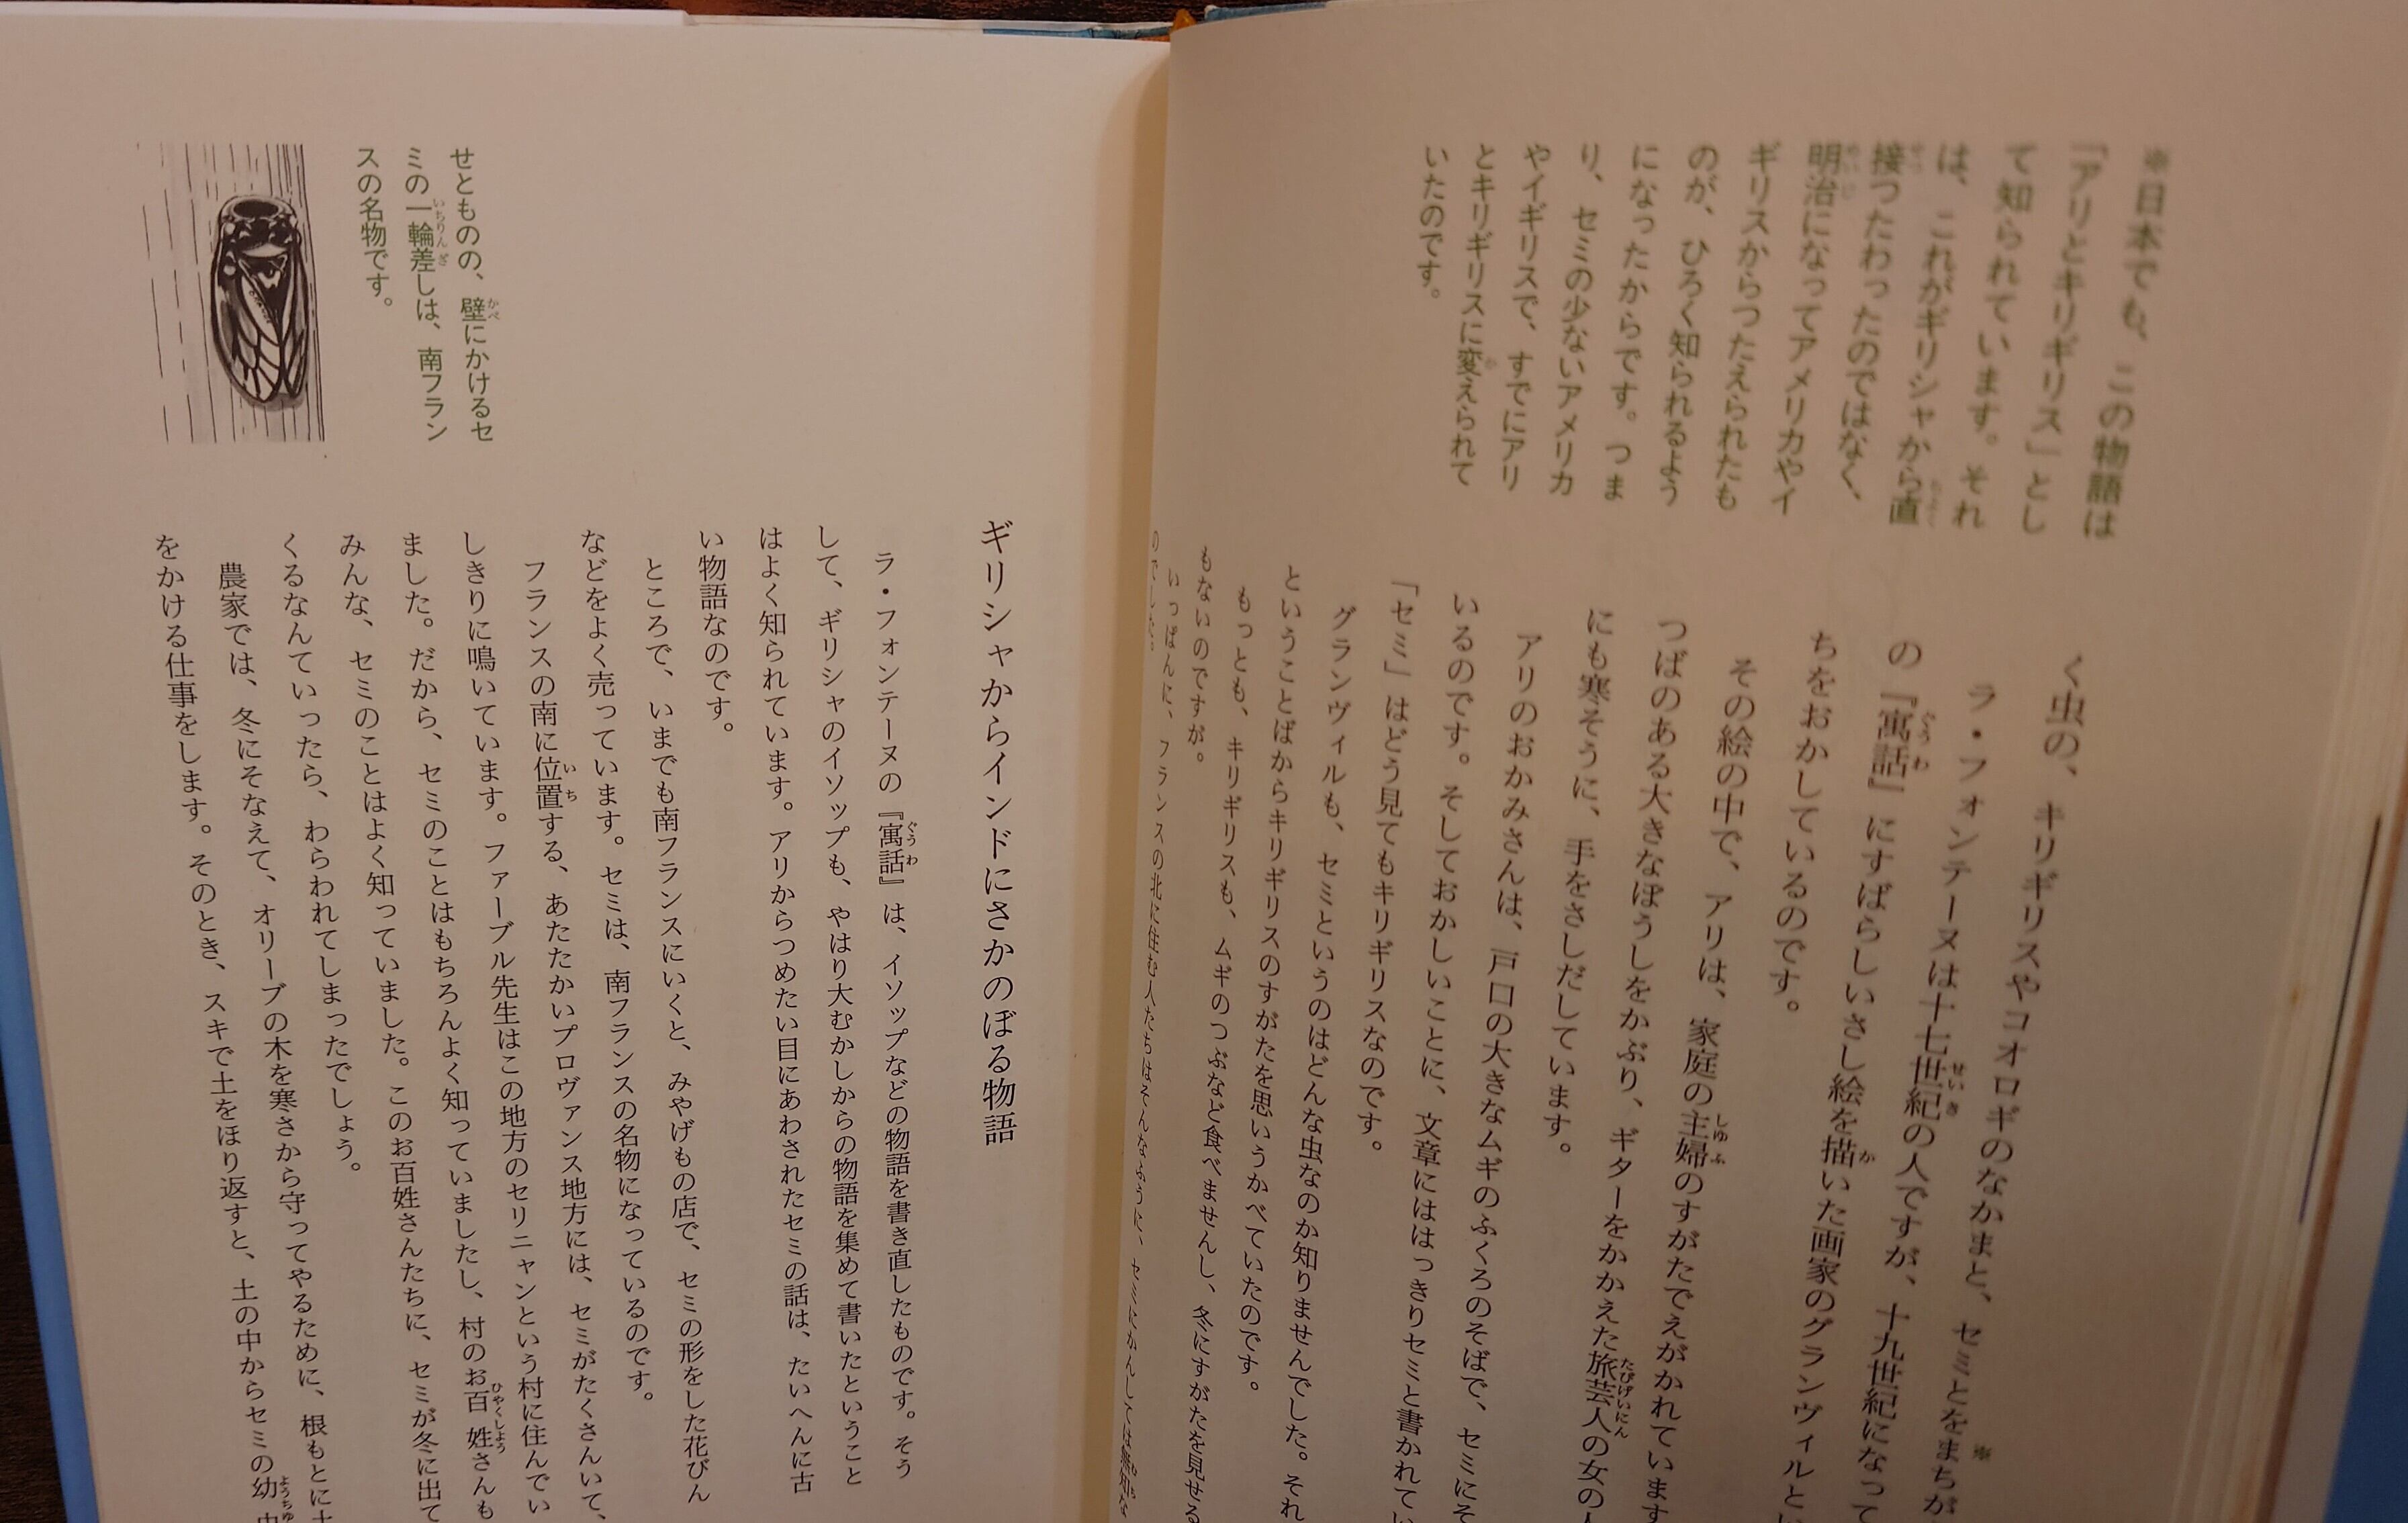 ※日本でも、この物語は
「アリとキリギリス」とし
て知られています。それ
は、これがギリシャから直
接つたわったのではなく、
明治になってアメリカやイ
ギリスからつたえられたも
のが、ひろく知られるよう
になったからです。つま
り、セミの少ないアメリカ
やイギリスで、すでにアリ
とキリギリスに変えられて
いたのです。
く虫の、キリギリスやコオロギのなかまと、セミとをまちが
ラ・フォンテーヌは十七世紀の人ですが、十九世紀になって
の『寓話』にすばらしいさし絵を描いた画家のグランヴィルとい
ちをおかしているのです。
その絵の中で、アリは、家庭の主婦のすがたでえがかれています
つばのある大きなぼうしをかぶり、ギターをかかえた旅芸人の女の人
にも寒そうに、手をさしだしています。
アリのおかみさんは、戸口の大きなムギのふくろのそばで、セミにそ
いるのです。そしておかしいことに、文章にははっきりセミと書かれてい
「セミ」はどう見てもキリギリスなのです。
グランヴィルも、セミというのはどんな虫なのか知りませんでした。それ
ということばからキリギリスのすがたを思いうかべていたのです。
もっとも、キリギリスも、ムギのつぶなど食べませんし、冬にすがたを見せる
もないのですが。
いっぱんに、フランスの北に住む人たちはそんなふうに、セミにかんしては無知な
のでした。
ギリシャからインドにさかのぼる物語
ラ・フォンテーヌの『寓話』は、イソップなどの物語を書き直したものです。そう
して、ギリシャのイソップも、やはり大むかしからの物語を集めて書いたということ
はよく知られています。アリからつめたい目にあわされたセミの話は、たいへんに古
い物語なのです。
ところで、いまでも南フランスにいくと、みやげもの店で、セミの形をした花びん
などをよく売っています。セミは、南フランスの名物になっているのです。
フランスの南に位置する、あたたかいプロヴァンス地方には、セミがたくさんいて、
しきりに鳴いています。ファーブル先生はこの地方のセリニャンという村に住んでい
ました。だから、セミのことはもちろんよく知っていましたし、村のお百姓さんも
みんな、セミのことはよく知っていました。このお百姓さんたちに、セミが冬に出て
くるなんていったら、わらわれてしまったでしょう。
農家では、冬にそなえて、オリーブの木を寒さから守ってやるために、根もとに土
をかける仕事をします。そのとき、スキで土をほり返すと、土の中からセミの幼虫
せとものの、壁にかけるセ
ミの一輪差しは、南フラン
スの名物です。